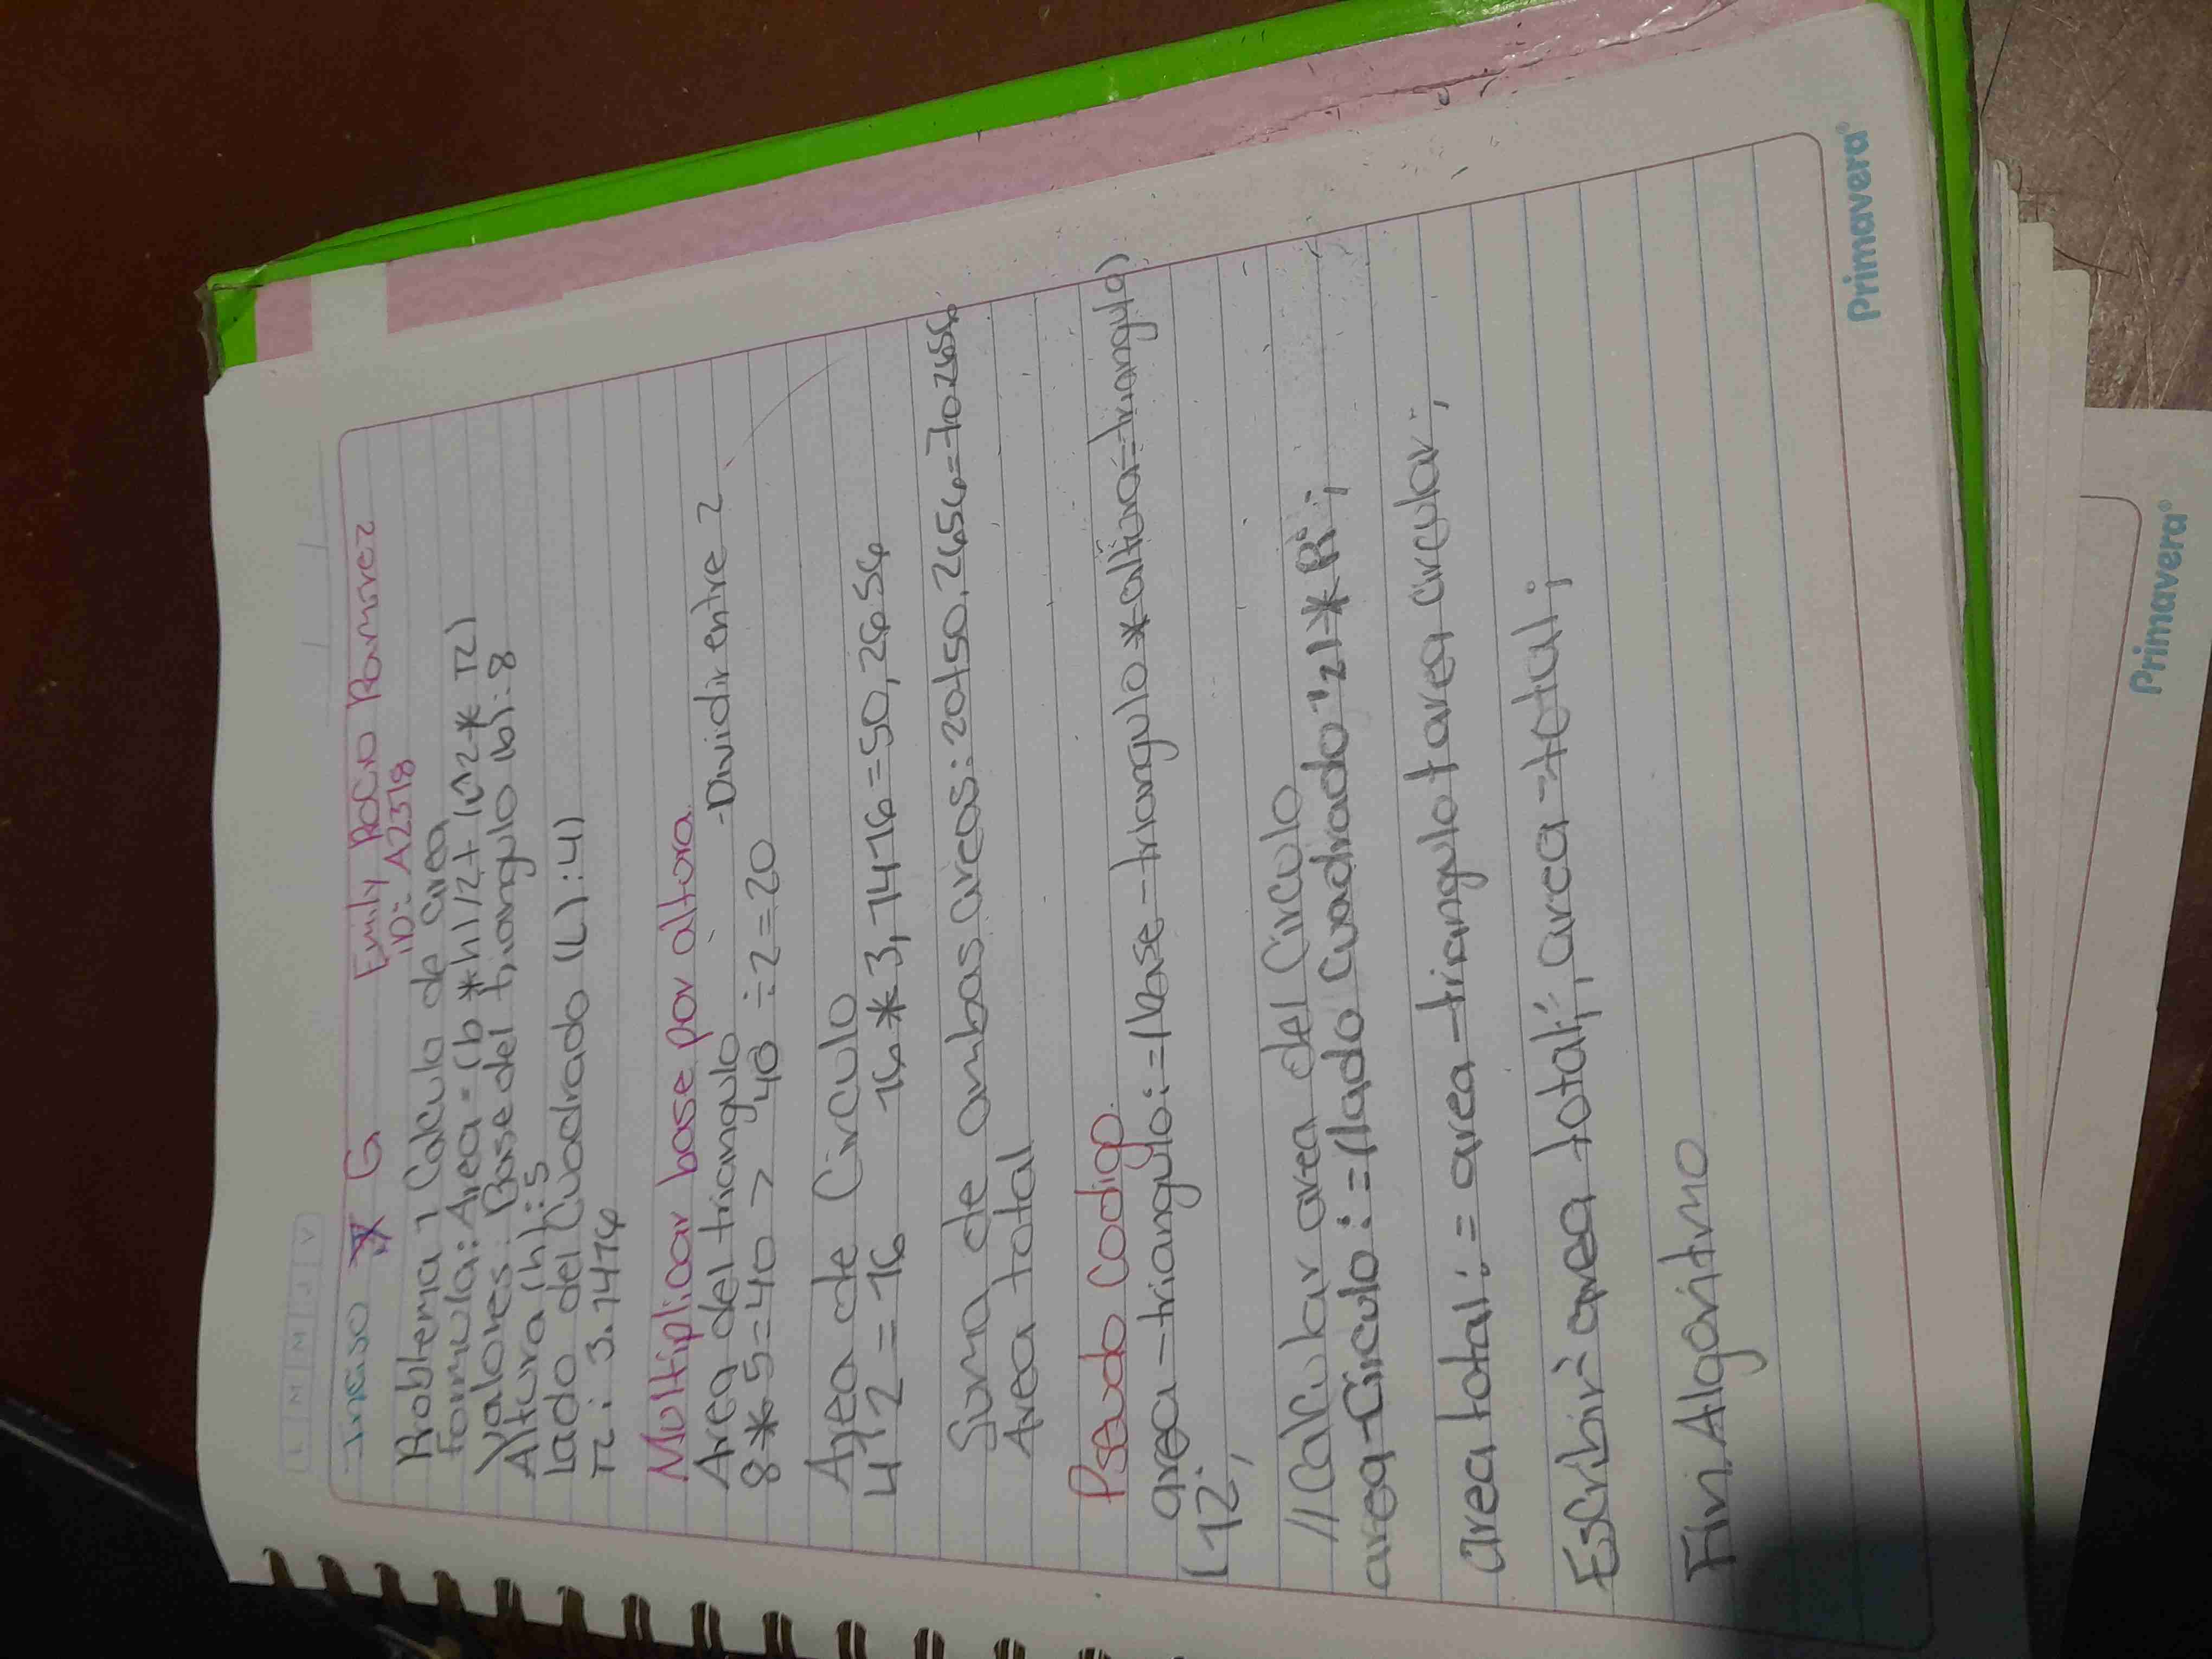 L M M J V
Inciso G Emily Rocio Ramirez
ID: A2318
Problema 1 Calculo de area
formula: Area = (b *h)/2)+(L^2*π)
Valores: Base del triangulo (b): 8
Altura (h): 5
Lado del Cuadrado (L):4)
π: 3.1416
Multiplicar base por altura
Area del triangulo -Dividir entre 2
8*5=40 > 40 ÷2=20
Area de Circulo
4^2=16 16*3,1416=50,2656
Suma de ambas areas: 20+50,2656=70.2656
Area total
Pseudo Codigo
area-triangulo:=(base-triangulo*altura-triangulo)
(12;
//Calcular area del Circulo
area-Circulo:=(lado Cuadrado^2)*Pi;
area total:= area-triangulo+area circular;
Escribir area total", area-total;
Fin Algoritmo
Primavera®
Primavera®